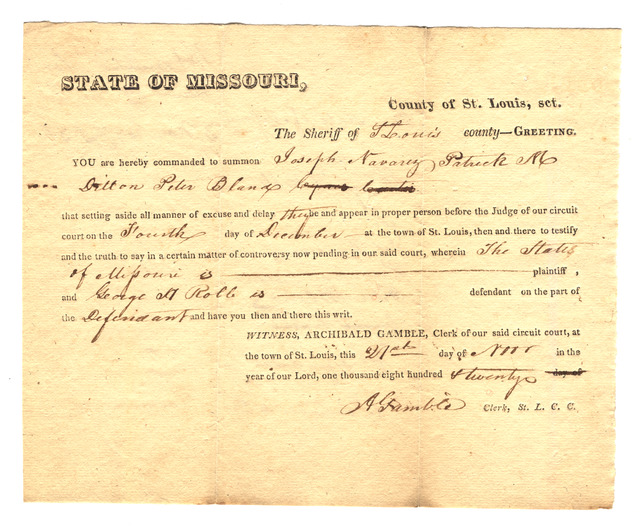 STATE OF MISSOURI,
County of St. Louis, sct.
The Sheriff of St Louis county—GREETING.
YOU are hereby commanded to summon Joseph Navarez Patrick M
Dillon Peter Bland
that setting aside all manner of excuse and delay they be and appear in proper person before the Judge of our circuit
court on the Fourth day of December at the town of St. Louis, then and there to testify
and the truth to say in a certain matter of controversy now pending in our said court, wherein The State
of Missouri is plaintiff,
and George H Robb is defendant on the part of
the Defendant and have you then and there this writ.
WITNESS, ARCHIBALD GAMBLE, Clerk of our said circuit court, at
the town of St. Louis, this 21st day of Novr in the
year of our Lord, one thousand eight hundred & twenty day of
A Gamble Clerk, St. L. C. C.